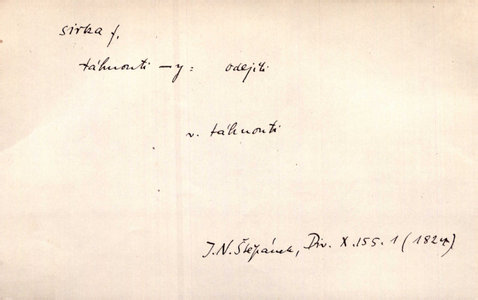 sirka f.
táhnouti –y: odejíti
v. táhnouti
J.N. Štěpánek, Div. X.155.1 (1824)